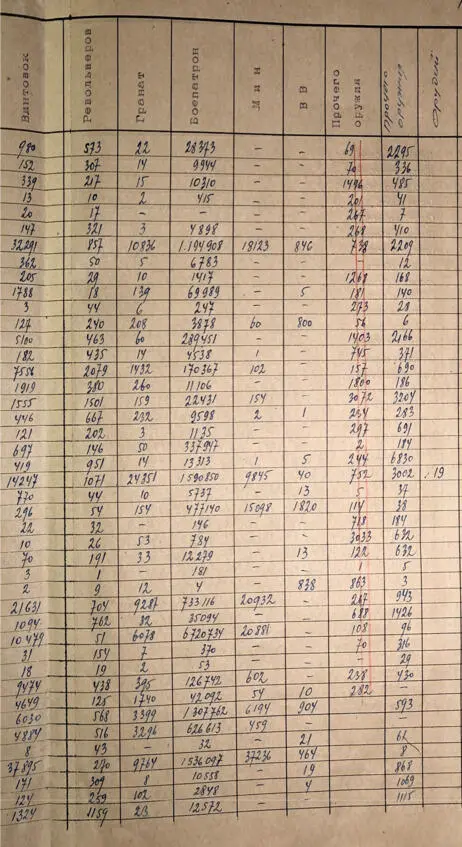 Винтовок Револьверов Гранат Боепатрон Мин ВВ Прочего оружия
980 573 22 28373 – – 69 2295
152 307 14 9944 – – 70 336
339 217 15 10310 – – 1496 485
13 10 2 415 – – 201 41
20 17 – – – – 267 7
147 321 3 4898 – – 268 410
32291 857 10836 1.194908 18123 846 738 2209
362 50 5 6783 – – – 12
205 29 10 1417 – – 1268 168
1788 18 139 69989 – 5 181 140
3 44 6 247 – – 273 28
127 240 208 3878 60 800 56 6
5100 463 60 289451 – – 1403 2166
182 435 14 4538 1 – 745 371
7556 2079 1432 170367 102 – 157 690
1919 380 260 11106 – – 1800 186
1555 1501 159 22431 154 – 3072 3204
446 667 232 9598 2 1 234 283
121 202 3 1135 – – 297 691
697 146 50 337947 – – 2 184
419 951 14 13313 1 5 244 6830
14247 1071 24351 1590850 9845 40 752 3002 19
770 44 10 5737 – 13 5 37
296 54 154 477140 15098 1820 114 38
22 32 – 146 – – 718 184
10 26 53 784 – – 3033 632
70 191 33 12279 – 13 122 632
3 1 – 181 – – 1 5
2 9 12 4 – 838 863 3
21631 704 9287 733116 20932 – 267 943
1094 762 32 35094 – – 688 1426
10479 51 6078 6720734 20881 – 108 96
31 154 7 370 – – 70 316
18 19 2 53 – – – 29
9474 438 395 126742 602 – 238 430
4649 125 1740 42092 54 10 282 –
6030 568 3399 1307762 6194 904 593
4884 516 3296 626613 459 – –
8 43 – 32 – 21 62
37895 270 9764 1536097 37236 464 8
171 309 8 10558 – 19 868
124 259 102 2848 – 4 1069
1324 1159 23 12572 – – 1115